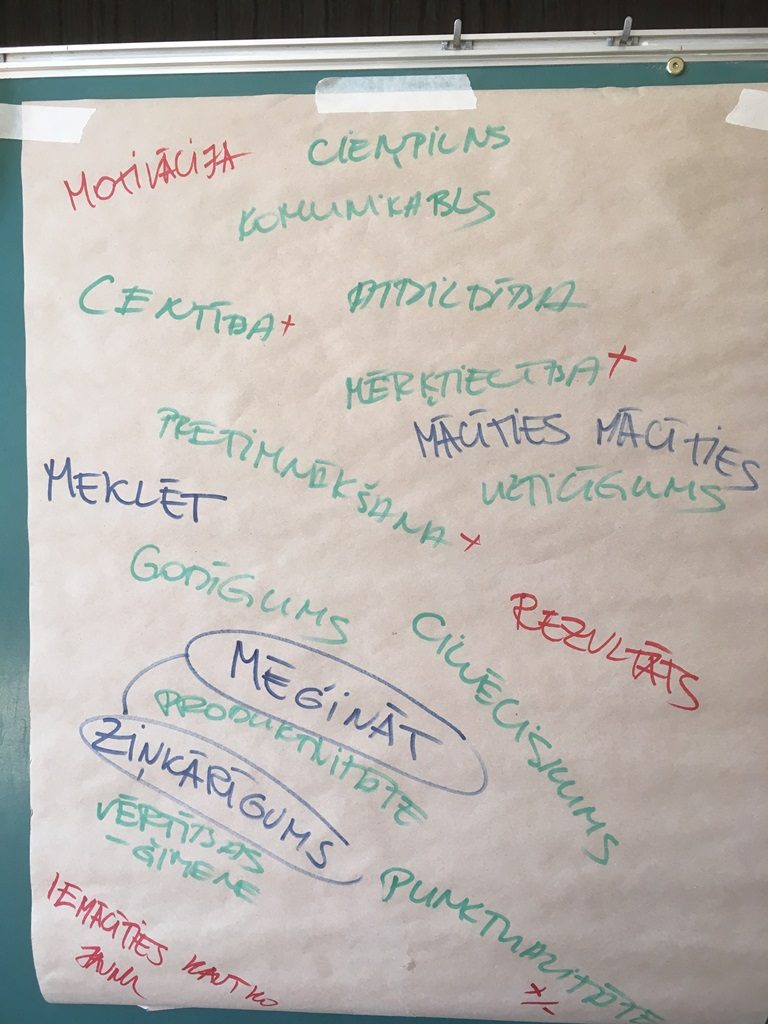 MOTIVĀCIJA
CIEŅPILNS
KOMUNIKABLS
CENTĪBA +
ATBILDĪBA
MĒRĶTIECĪBA +
MĀCĪTIES MĀCĪTIES
PRETIMNĀKŠANA +
MEKLĒT
UZTICĪGUMS
GODĪGUMS
REZULTĀTS
CILVĒCISKUMS
MĒĢINĀT
PRODUKTIVITĀTE
ZIŅKĀRĪGUMS
VĒRTĪBAS
- ĢIMENE
PUNKTUALITĀTE
+/-
IEMĀCĪTIES KAUT KO
JAUNU